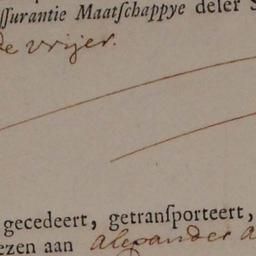 ſſurantie Maatſchappye deſer
de vrijer.
gecedeert, getranſporteert,
ezen aan Alexander a